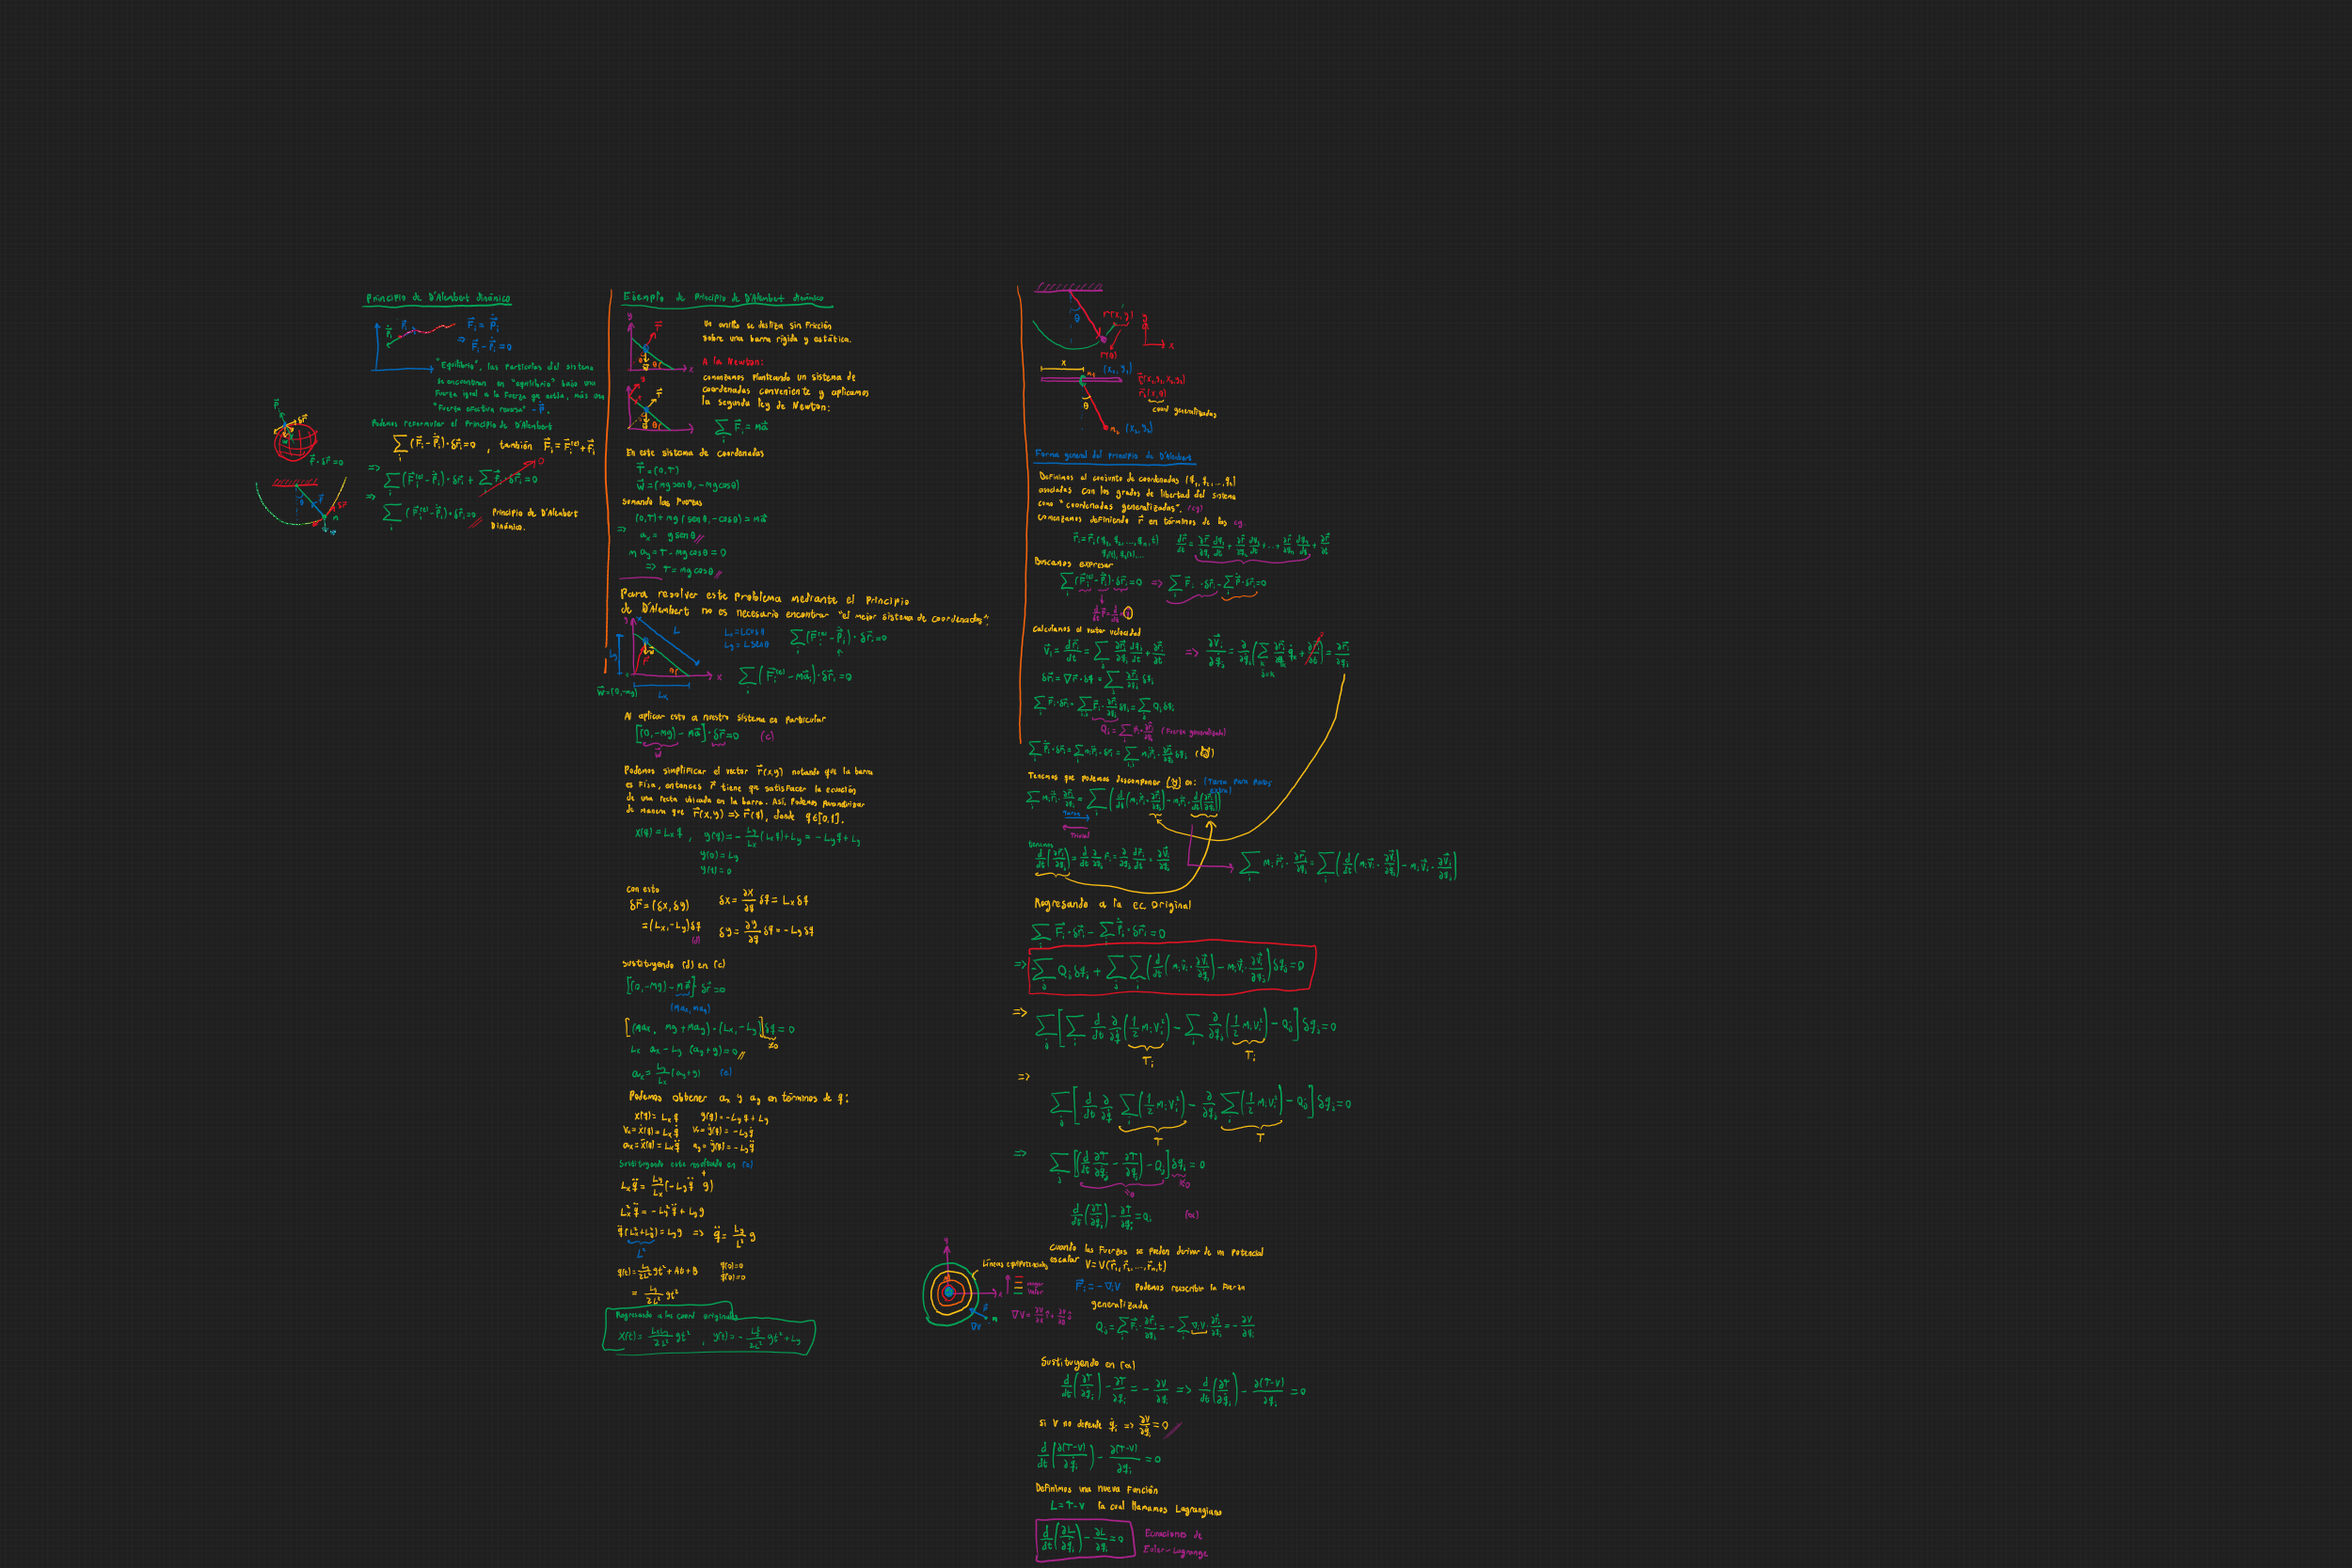 Principio de D'Alembert dinámico
"Equilibrio", las partículas del sistema
se encuentran en "equilibrio" bajo una
Fuerza igual a la Fuerza que actúa, más una
"Fuerza efectiva reversa" -ṗ.
Podemos reformular el Principio de D'Alembert
∑(F⃗ᵢ - ṗᵢ)·δr⃗ᵢ=0 , también F⃗ᵢ=F⃗ᵢ⁽ᵉ⁾+f⃗ᵢ
=> ∑(F⃗ᵢ⁽ᵉ⁾-ṗᵢ)·δr⃗ᵢ + ∑f⃗ᵢ·δr⃗ᵢ=0
=> ∑(F⃗ᵢ⁽ᵉ⁾-ṗᵢ)·δr⃗ᵢ=0 Principio de D'Alembert
Dinámico.
Ejemplo de Principio de D'Alembert dinámico
Un anillo se desliza sin fricción
sobre una barra rígida y estática.
A la Newton:
comenzamos planteando un sistema de
coordenadas conveniente y aplicamos
la segunda ley de Newton:
∑F⃗ᵢ = ma⃗
En este sistema de coordenadas
T⃗=(0,T)
W⃗=(mg sen θ, -mg cos θ)
sumando las Fuerzas
(0,T)+mg(sen θ, -cos θ)=ma⃗
=> aₓ= g sen θ
m a_y = T - mg cos θ = 0
=> T = mg cos θ
Para resolver este problema mediante el Principio
de D'Alembert no es necesario encontrar "el mejor sistema de coordenadas":
Lₓ=L cos θ
L_y=L sen θ
∑(F⃗ᵢ⁽ᵉ⁾-ṗᵢ)·δr⃗ᵢ=0
∑(F⃗ᵢ⁽ᵉ⁾-ma⃗ᵢ)·δr⃗ᵢ=0
W⃗=(0,-mg)
Al aplicar esto a nuestro sistema en particular
[(0,-mg)-ma⃗]·δr⃗=0 (c)
Podemos simplificar el vector r⃗(x,y) notando que la barra
es fija, entonces r⃗ tiene que satisfacer la ecuación
de una recta ubicada en la barra. Así, podemos parametrizar
de manera que r⃗(x,y) => r⃗(q), donde q∈[0,1].
x(q)=Lₓq , y(q)=-L_y/Lₓ(Lₓq)+L_y=-L_y q+L_y
y(0)=L_y
y(1)=0
con esto
δr⃗=(δx,δy) δx=∂x/∂q δq=Lₓδq
=(Lₓ,-L_y)δq δy=∂y/∂q δq=-L_y δq
(d)
sustituyendo (d) en (c)
[(0,-mg)-ma⃗]·δr⃗=0
(maₓ,ma_y)
[(maₓ, mg+ma_y)·(Lₓ,-L_y)]δq=0
≠0
Lₓ aₓ-L_y(a_y+g)=0
aₓ=L_y/Lₓ(a_y+g) (e)
Podemos obtener aₓ y a_y en términos de q:
x(q)=Lₓq y(q)=-L_y q+L_y
vₓ=ẋ(q)=Lₓq̇ v_y=ẏ(q)=-L_y q̇
aₓ=ẍ(q)=Lₓq̈ a_y=ÿ(q)=-L_y q̈
Sustituyendo este resultado en (e)
Lₓq̈=L_y/Lₓ(-L_y q̈+g)
Lₓ²q̈=-L_y²q̈+L_y g
q̈(Lₓ²+L_y²)=L_y g => q̈=L_y/L² g
L²
q(t)=L_y/2L² gt²+At+B q(0)=0
q̇(0)=0
=L_y/2L² gt²
Regresando a las coord originales
x(t)=LₓL_y/2L² gt² , y(t)=-L_y²/2L² gt²+L_y
coord generalizadas
Forma general del principio de D'Alembert
Definimos al conjunto de coordenadas (q₁,q₂,...,qₙ)
asociadas con los grados de libertad del sistema
como "coordenadas generalizadas". (cg)
comenzamos definiendo r⃗ en términos de las cg.
r⃗ᵢ=r⃗ᵢ(q₁,q₂,...,qₙ,t) dr⃗/dt=∂r⃗/∂q₁ dq₁/dt+∂r⃗/∂q₂ dq₂/dt+...+∂r⃗/∂qₙ dqₙ/dt+∂r⃗/∂t
q₁(t),q₂(t),...
Buscamos expresar
∑(F⃗ᵢ⁽ᵉ⁾-ṗᵢ)·δr⃗ᵢ=0 => ∑F⃗ᵢ·δr⃗ᵢ-∑ṗᵢ·δr⃗ᵢ=0
Calculamos el vector velocidad
v⃗ᵢ=dr⃗ᵢ/dt=∑∂r⃗ᵢ/∂qⱼ dqⱼ/dt+∂r⃗ᵢ/∂t => ∂v⃗ᵢ/∂q̇ⱼ=∂/∂q̇ⱼ(∑∂r⃗ᵢ/∂qₖ q̇ₖ+∂r⃗ᵢ/∂t)=∂r⃗ᵢ/∂qⱼ
δr⃗ᵢ=∇r⃗·δq=∑∂r⃗ᵢ/∂qⱼ δqⱼ
∑F⃗ᵢ·δr⃗ᵢ=∑F⃗ᵢ·∂r⃗ᵢ/∂qⱼ δqⱼ=∑Qⱼδqⱼ
Qⱼ=∑F⃗ᵢ·∂r⃗ᵢ/∂qⱼ (Fuerza generalizada)
∑ṗᵢ·δr⃗ᵢ=∑mᵢr̈ᵢ·δr⃗ᵢ=∑mᵢr̈ᵢ·∂r⃗ᵢ/∂qⱼ δqⱼ
Tenemos que podemos descomponer en: (Tarea para puntos
extra)
∑mᵢr̈ᵢ·∂r⃗ᵢ/∂qⱼ=∑(d/dt(mᵢṙᵢ·∂r⃗ᵢ/∂qⱼ)-mᵢṙᵢ·d/dt(∂r⃗ᵢ/∂qⱼ))
Tarea
Trivial
tenemos
d/dt(∂r⃗ᵢ/∂qⱼ)=d/dt ∂/∂qⱼ r⃗ᵢ=∂/∂qⱼ dr⃗ᵢ/dt=∂v⃗ᵢ/∂qⱼ
∑mᵢr̈ᵢ·∂r⃗ᵢ/∂qⱼ=∑(d/dt(mᵢv⃗ᵢ·∂v⃗ᵢ/∂q̇ⱼ)-mᵢv⃗ᵢ·∂v⃗ᵢ/∂qⱼ)
Regresando a la ec. Original
∑F⃗ᵢ·δr⃗ᵢ-∑ṗᵢ·δr⃗ᵢ=0
=> -∑Qⱼδqⱼ+∑∑(d/dt(mᵢv⃗ᵢ·∂v⃗ᵢ/∂q̇ⱼ)-mᵢv⃗ᵢ·∂v⃗ᵢ/∂qⱼ)δqⱼ=0
=> ∑[∑d/dt ∂/∂q̇(1/2 mᵢvᵢ²)-∑∂/∂qⱼ(1/2 mᵢvᵢ²)-Qⱼ]δqⱼ=0
Tᵢ Tᵢ
=> ∑[d/dt ∂/∂q̇ ∑(1/2 mᵢvᵢ²)-∂/∂qⱼ ∑(1/2 mᵢvᵢ²)-Qⱼ]δqⱼ=0
T T
=> ∑[(d/dt ∂T/∂q̇ⱼ-∂T/∂qⱼ)-Qⱼ]δqⱼ=0
=0 ≠0
d/dt(∂T/∂q̇ⱼ)-∂T/∂qⱼ=Qⱼ (α)
Cuando las Fuerzas se pueden derivar de un potencial
escalar V=V(r⃗₁,r⃗₂,...,r⃗ₙ,t)
Líneas equipotenciales
mayor
valor
F⃗ᵢ=-∇ᵢV Podemos reescribir la Fuerza
generalizada
Qⱼ=∑F⃗ᵢ·∂r⃗ᵢ/∂qⱼ=-∑∇ᵢV·∂r⃗ᵢ/∂qⱼ=-∂V/∂qⱼ
Sustituyendo en (α)
d/dt(∂T/∂q̇ⱼ)-∂T/∂qⱼ=-∂V/∂qⱼ => d/dt(∂T/∂q̇ⱼ)-∂(T-V)/∂qⱼ=0
Si V no depende q̇ⱼ => ∂V/∂q̇ⱼ=0
d/dt(∂(T-V)/∂q̇ⱼ)-∂(T-V)/∂qⱼ=0
Definimos una nueva Función
L=T-V la cual llamamos Lagrangiano
d/dt(∂L/∂q̇ⱼ)-∂L/∂qⱼ=0 Ecuaciones de
Euler-Lagrange